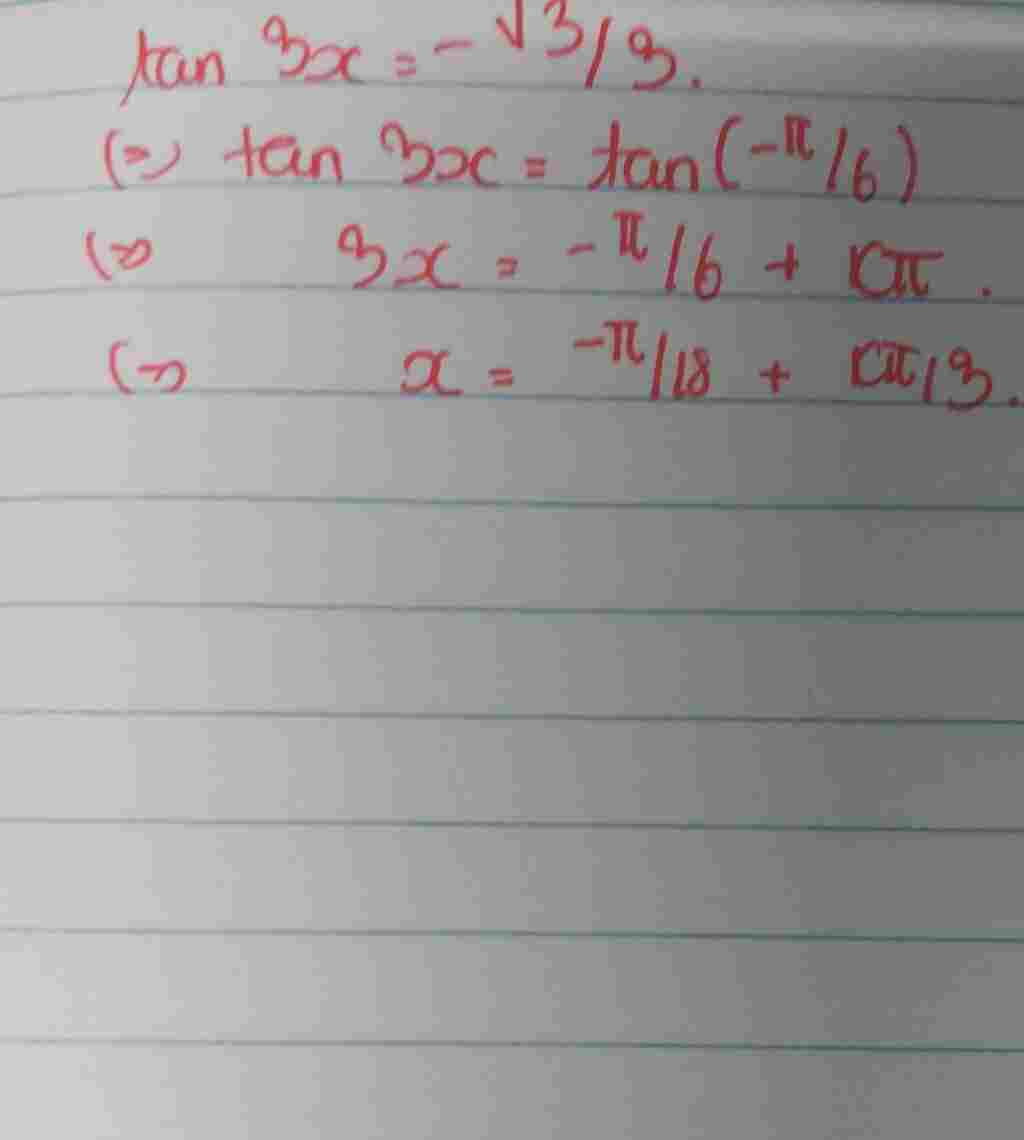 tan 3x = -√3/3.
(=) tan 3x = tan(-π/6)
(=) 3x = -π/6 + kπ.
(=) x = -π/18 + kπ/3.